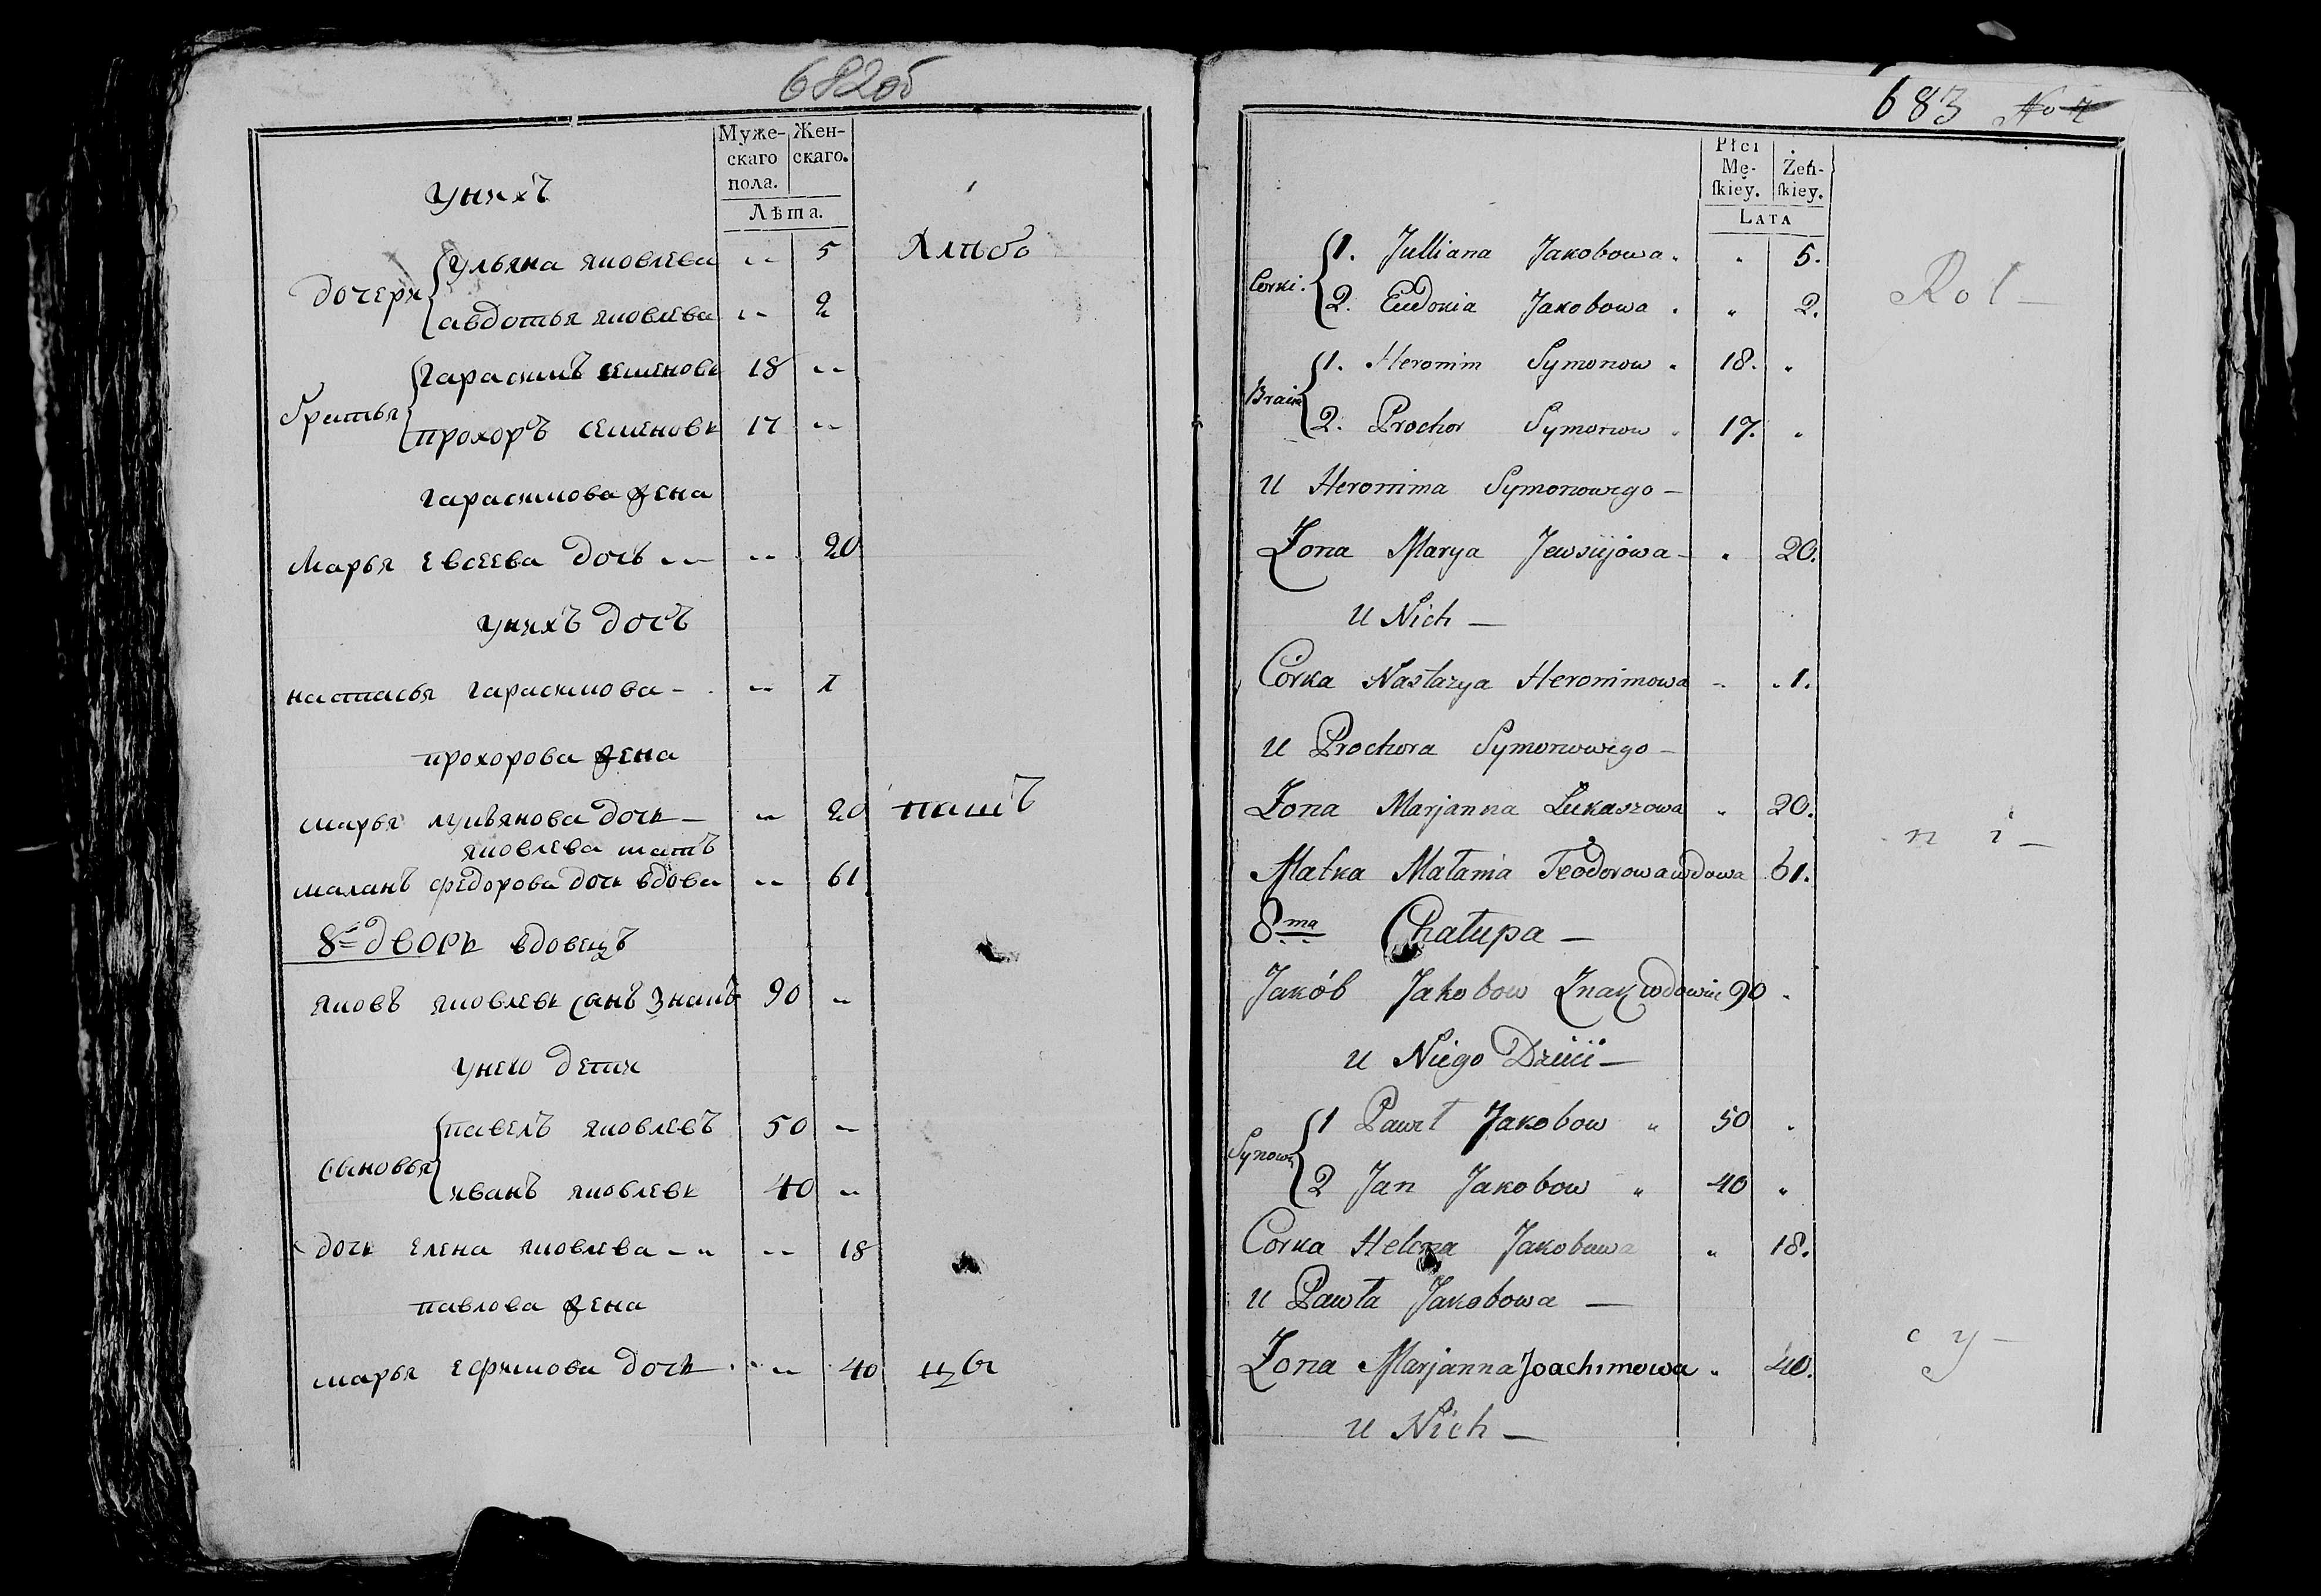 682об
Муже- Жен-
скаго скаго.
пола.
Лѣта.
унихъ
Хлѣбо
дочери
ульяна яковлева -- 5
авдотья яковлева -- 2
братья
гарасимъ семеновъ 18 --
прохоръ семеновъ 17 --
гарасимова жена
Марья евсеева дочь -- -- 20
унихъ дочь
настасья гарасимова - -- 1
прохорова жена
марья лукьянова дочь -- 20 паш
яковлева мать
маланъ федорова дочь вдова -- 61
8й дворъ вдовецъ
яковъ яковлевъ 90 --
унего дети
сыновья
павелъ яковлевъ 50 --
иванъ яковлевъ 40 --
дочь елена яковлева -- -- 18
павлова жена
марья ефимова дочь -- 40 цы
683 No 4
Płci
Mę- Żeń-
skiey. skiey.
LATA
Corki.
1. Julliana Jakobowa. " 5.
2. Eudokia Jakobowa. " 2.
Rol-
Bracia
1. Heronim Symonow. 18. "
2. Prochor Symonow " 17. "
u Heronima Symonowego -
Żona Marya Jewsiijowa - " 20.
u Nich -
Córka Nastazya Heronimowa - " 1.
u Prochora Symonowego -
Żona Marjanna Łukaszowa " 20.
n i -
Matka Małania Teodorowa wdowa 61.
8ma Chałupa -
Jakób Jakobow Znak wdowiec 90 "
u Niego Dzieci -
Synowie
1 Paweł Jakobow " 50 "
2 Jan Jakobow " 40 "
Corka Helena Jakobowa " 18.
u Pawła Jakobowa -
c y -
Żona Marjanna Joachimowa " 40.
u Nich -